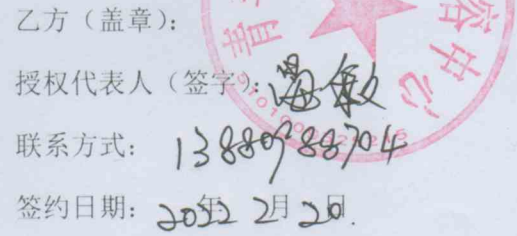 乙方（盖章）：
授权代表人（签字）：
联系方式：13889788704
签约日期：2022年2月20日.